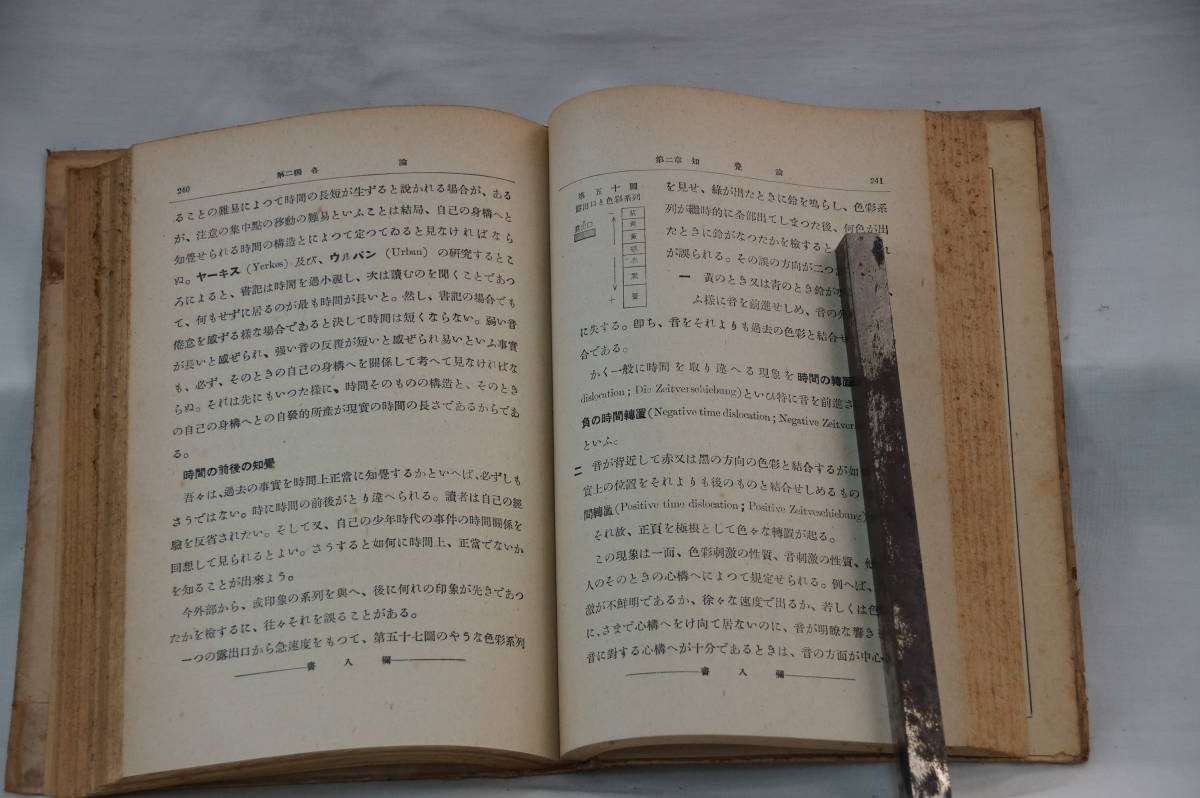 240
第二編 各 論
ることの難易によつて時間の長短が生ずると說かれる場合が、ある
が、注意の集中點の移動の難易といふことは結局、自己の身構へと
知覺せられる時間の構造とによつて定つてゐると見なければなら
ぬ。ヤーキス (Yerkes) 及び、ウルバン (Urban) の硏究するとこ
ろによると、書記は時間を過小視し、次は讀むのを聞くことであつ
て、何もせずに居るのが最も時間が長いと。然し、書記の場合でも
倦怠を感ずる樣な場合であると決して時間は短くならない。弱い音
が長いと感ぜられ、强い音の反覆が短いと感ぜられ易いといふ事實
も、必ず、そのときの自己の身構へを關係して考へて見なければな
らぬ。それは先にもいつた樣に、時間そのものの構造と、そのとき
の自己の身構へとの自發的所產が現實の時間の長さであるからであ
る。
時間の前後の知覺
吾々は、過去の事實を時間上正當に知覺するかといへば、必ずしも
さうではない。時に時間の前後がとり違へられる。讀者は自己の經
驗を反省されたい。そして又、自己の少年時代の事件の時間關係を
回想して見られるとよい。さうすると如何に時間上、正當でないか
を知ることが出來よう。
今外部から、或印象の系列を與へ、後に何れの印象が先きであつ
たかを檢するに、往々それを誤ることがある。
一つの露出口から急速度をもつて、第五十七圖のやうな色彩系列
書 入 欄
第二章 知 覺 論
241
第 五 十 圖
露出口と色彩系列
露出口
−
紫
靑
黃
綠
赤
黑
+
を見せ、綠が出たときに鈴を鳴らし、色彩系
列が繼時的に全部出てしまつた後、何色が出
たときに鈴がなつたかを檢すると
が誤られる。その誤の方向が二つ
一 黃のとき又は靑のとき鈴が
ふ樣に音を前進せしめ、音の
に失する。卽ち、音をそれよりも過去の色彩と結合せ
合である。
かく一般に時間を取り違へる現象を時間の轉置
dislocation; Die Zeitverschiebung)といひ特に音を前進さ
負の時間轉置(Negative time dislocation; Negative Zeitver
といふ。
二 音が背近して赤又は黑の方向の色彩と結合するが如
實上の位置をそれよりも後のものと結合せしめるもの
間轉置(Positive time dislocation; Positive Zeitveschiebung)
それ故、正頁を極振として色々な轉置が起る。
この現象は一面、色彩刺激の性質、音刺激の性質、他
人のそのときの心構へによつて規定せられる。例へば、
激が不鮮明であるか、徐々な速度で出るか、若しくは色
に、さまで心構へをけ向て居ないのに、音が明瞭な響き
音に對する心構へが十分であるときは、音の方面が中心
書 入 欄